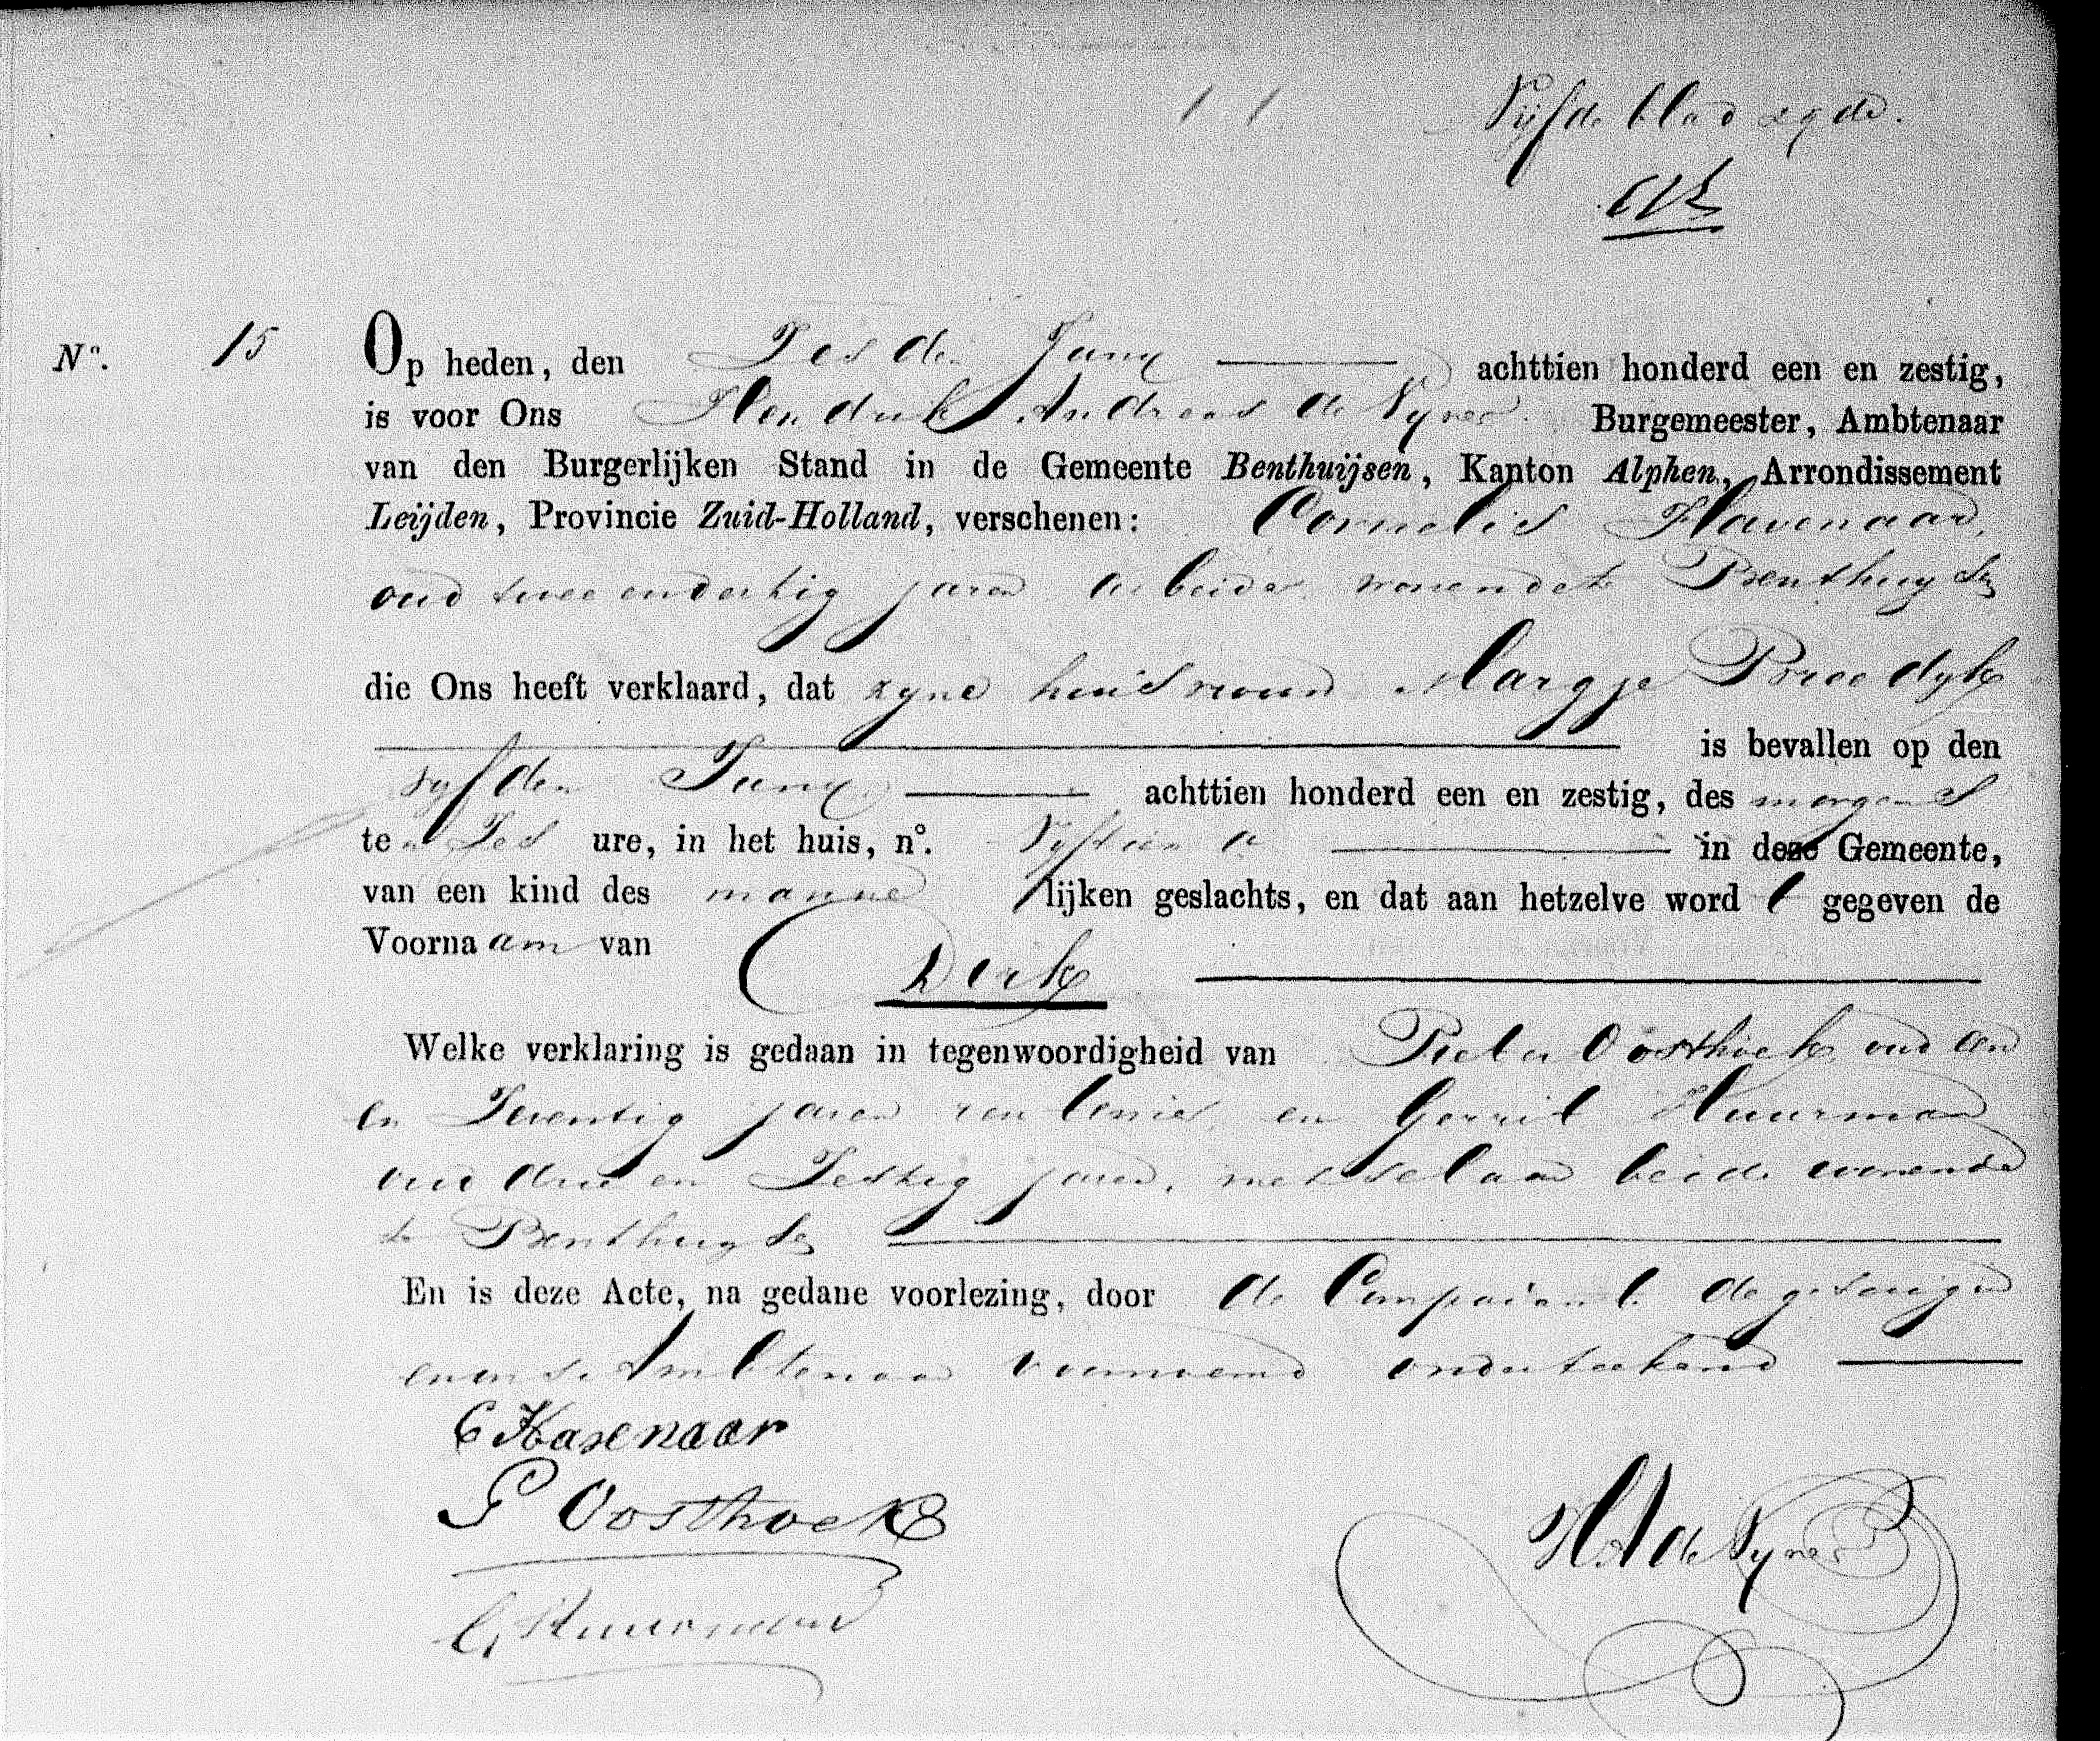 Vijfde blad
N°. 15
Op heden, den Zesden Juny achttien honderd een en zestig,
is voor Ons Hendrik Andreas de Vynes Burgemeester, Ambtenaar
van den Burgerlijken Stand in de Gemeente Benthuijsen, Kanton Alphen, Arrondissement
Leijden, Provincie Zuid-Holland, verschenen: Cornelis Havenaar,
oud twee en dertig jaren arbeider wonende te Benthuysen
die Ons heeft verklaard, dat zyne huisvrouw Margje Breedyk
is bevallen op den
vyfden Juny achttien honderd een en zestig, des morgens
te Zes ure, in het huis, n°. Vyftien a in deze Gemeente,
van een kind des manne lijken geslachts, en dat aan hetzelve word t gegeven de
Voornaam van
Dirk
Welke verklaring is gedaan in tegenwoordigheid van Pieter Oosthoek oud een
en Zeventig jaren rentenier en Gerrit Huurman
oud drie en Zestig jaren, metselaar beide wonende
te Benthuysen
En is deze Acte, na gedane voorlezing, door de Comparant de getuigen
en ons Ambtenaar voornoemd onderteekend
C Havenaar
P Oosthoek
G Huurman
HA de Vynes